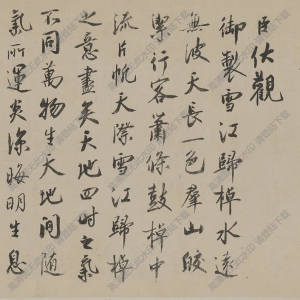 臣伏觀
御製雪江歸棹水遠
無波天長一色羣山皎
潔行客蕭條鼓棹中
流片帆天際雪江歸棹
之意盡矣天地四時之氣
不同萬物生天地間隨
氣所運炎涼晦明生息